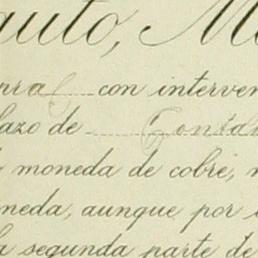 auto, M
pra con interven
lazo de Conta
moneda de cobre,
neda, aunque por
la segunda parte de